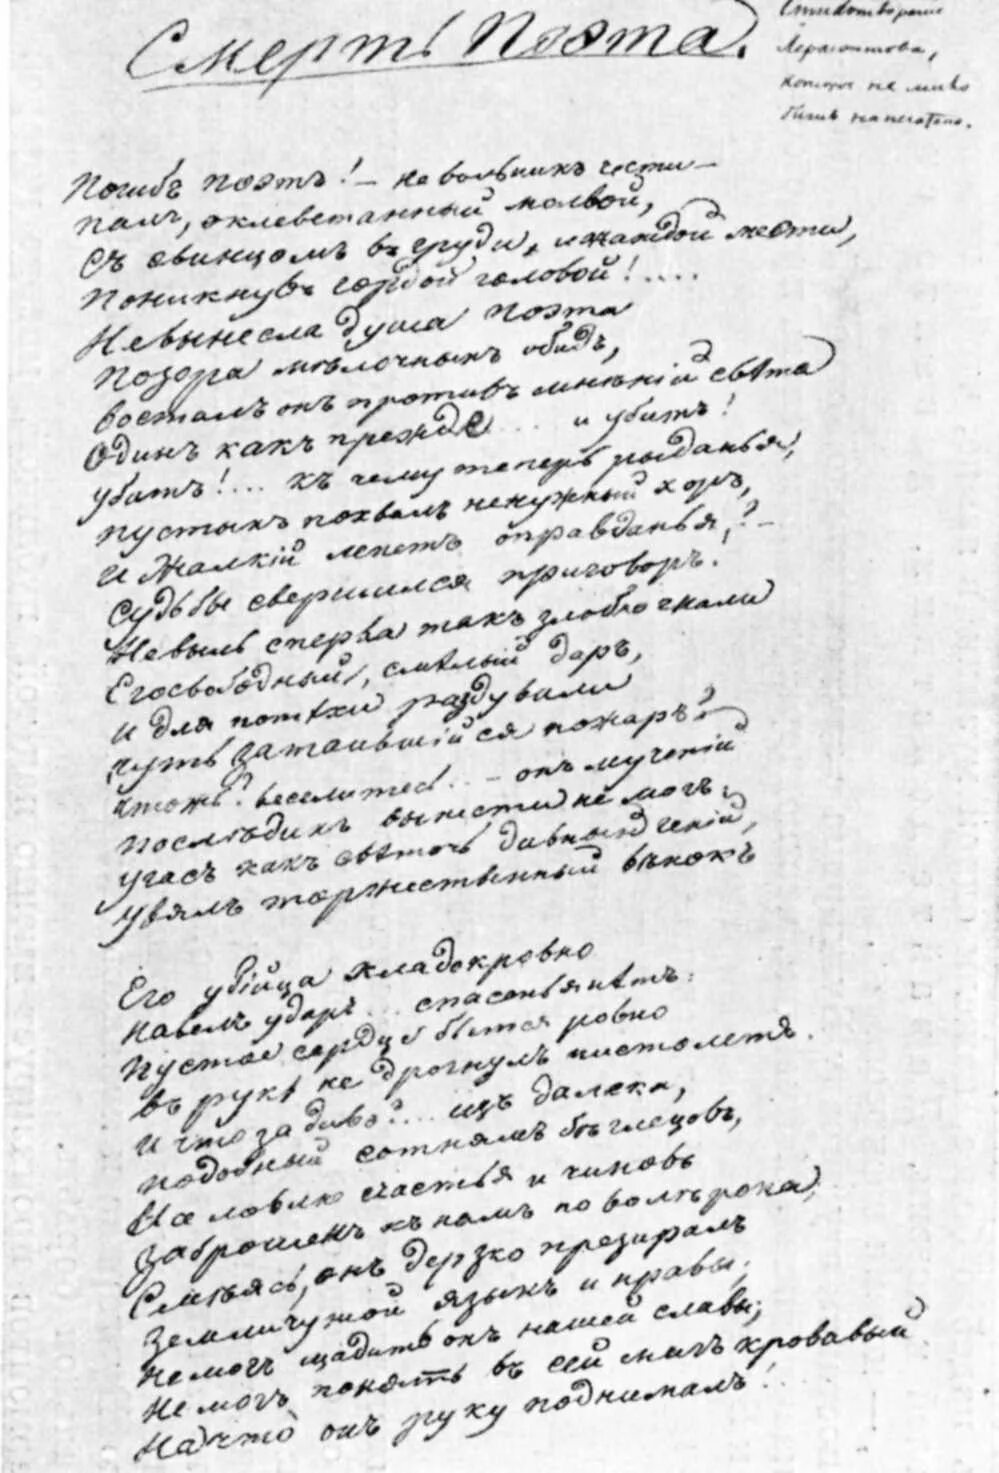 Смерть Поэта.
Стихотворение
Лермонтова,
которое не
было напечатано.
Погибъ поэтъ! — невольникъ чести —
палъ, оклеветанный молвой,
Съ свинцомъ въ груди, и жаждой мести,
Поникнувъ гордой головой!....
Невынесла душа поэта
Позора мелочныхъ обидъ,
возсталъ онъ противъ мнѣній свѣта
Одинъ какъ прежде.... и убитъ!
убитъ!... къ чему теперь рыданья,
пустыхъ похвалъ ненужный хоръ,
И Жалкій лепетъ оправданья,?—
Судьбы свершился приговоръ.
Не выль сперва такъ злобно гнали
Его свободный, смѣлый даръ,
и для потѣхи раздували
чуть затаившійся пожаръ?—
чтожъ? веселитесь..— онъ мученій
послѣднихъ вынести не могъ;
угасъ какъ свѣточь дивный геній,
увялъ торжественный вѣнокъ
Его убійца хладокровно
навелъ ударъ... спасенья нѣтъ:
пустое сердце бьется ровно
въ рукѣ не дрогнулъ пистолетъ.
и что за диво?... изъ далека,
подобный сотнямъ бѣглецовъ,
На ловлю счастья и чиновъ
Заброшенъ къ намъ по волѣ рока;
Смѣясь, онъ дерзко презиралъ
земли чужой языкъ и нравы;
не могъ щадить онъ нашей славы;
не могъ понять въ сей мигъ кровавый
На что онъ руку поднималъ!..